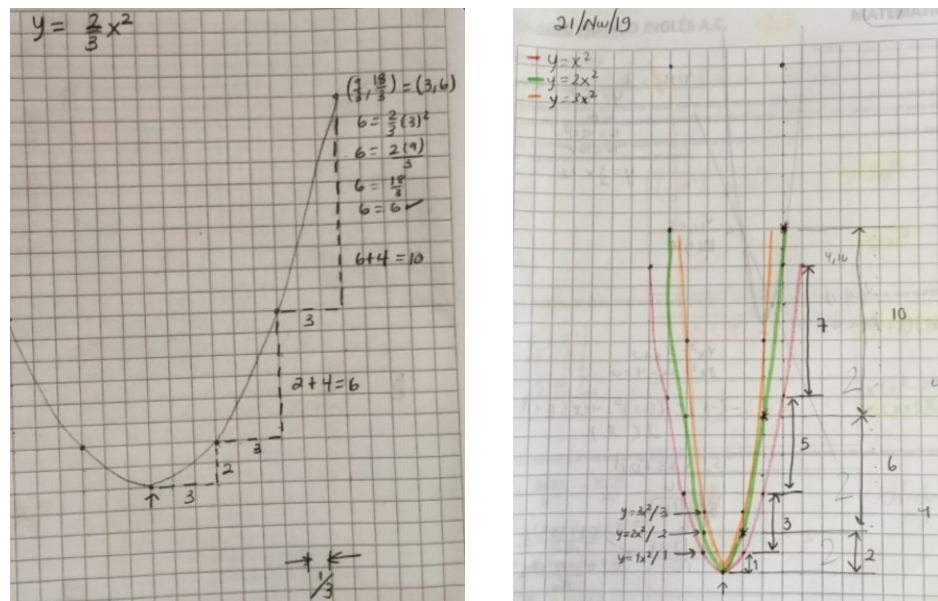 y = 2/3 x²
(9/3, 18/3) = (3,6)
6 = 2/3 (3)²
6 = 2(9)/3
6 = 18/3
6 = 6 ✓
6+4 = 10
3
2+4=6
3
2
3
1/3
21/Nov/19
INGLÉS A.C.
y = x²
y = 2x²
y = 3x²
4,16
7
10
5
6
y=3x²/3
y=2x²/2
y=1x²/1
3
1
2
2
2
2